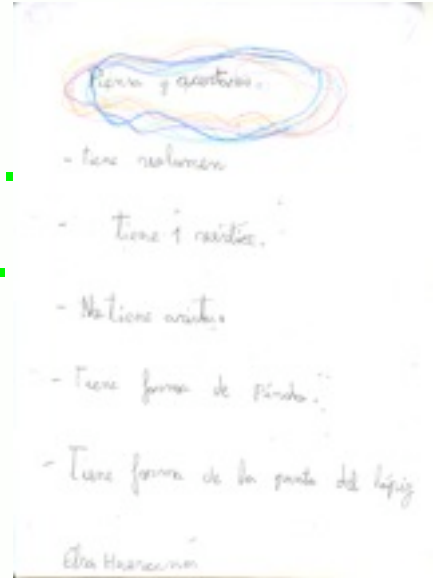 Piensa y acertarás.
- tiene volumen
- tiene 1 vértice.
- No tiene aristas
- Tiene forma de
- Tiene forma de la punta del lápiz